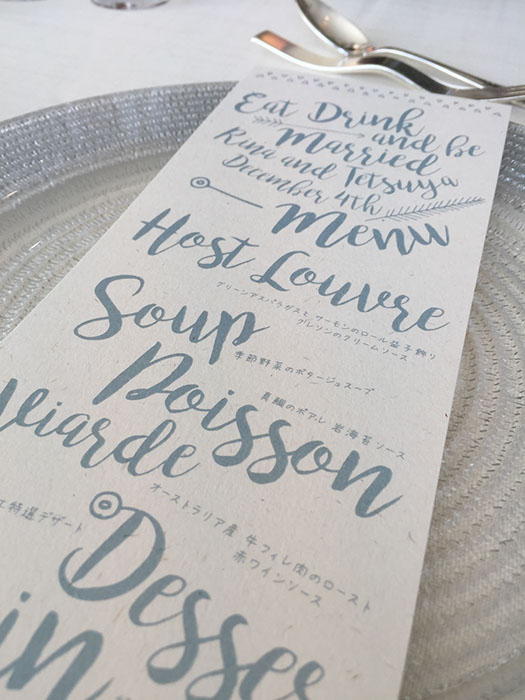 Eat Drink
and be
Married
Rina and Tetsuya
December 4th
Menu
Host Louvre
グリーンアスパラガスと サーモンのロール 益子飾り
クレソンのクリームソース
Soup
季節野菜のポタージュスープ
Poisson
真鯛のポアレ 岩海苔ソース
オーストラリア産 牛フィレ肉のロースト
赤ワインソース
特選デザート
Desse